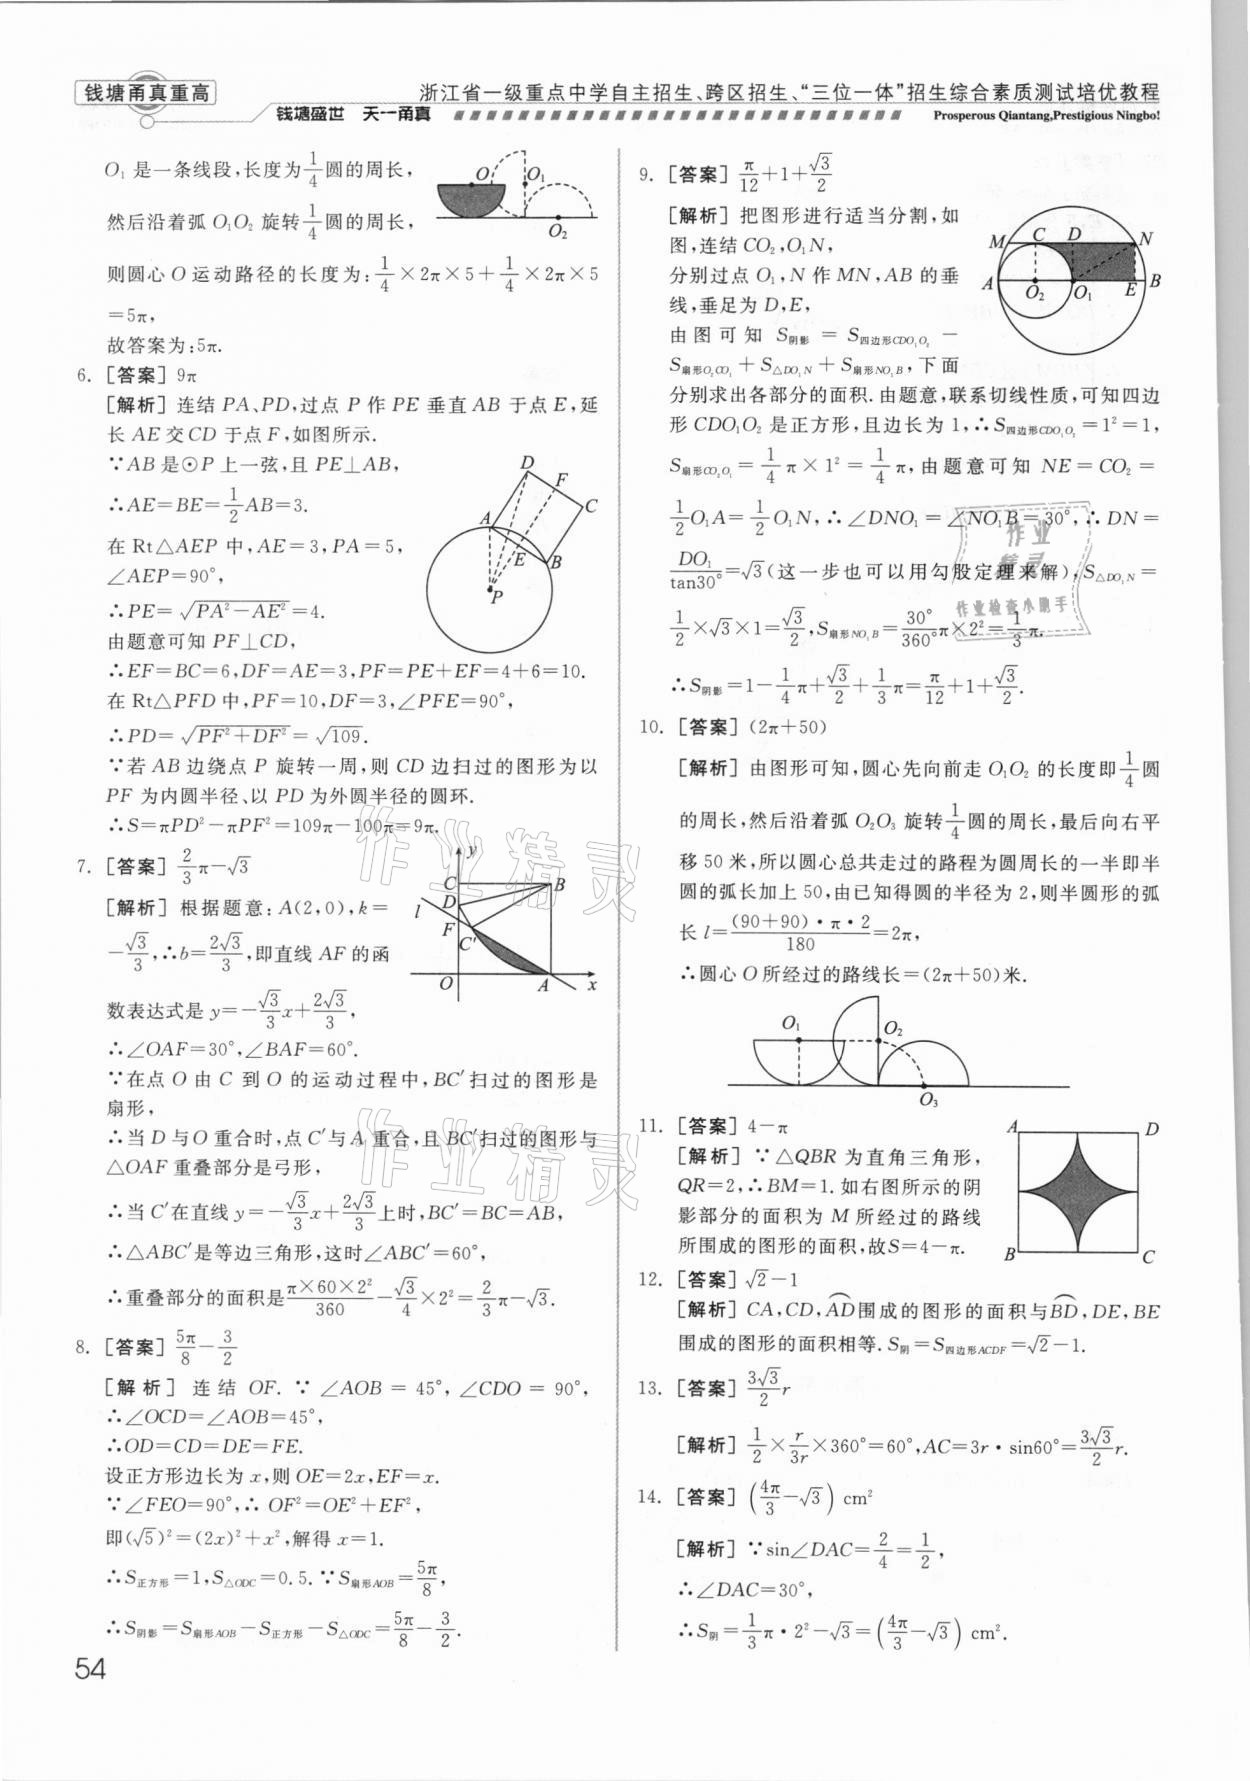 钱塘甬真重高
浙江省一级重点中学自主招生、跨区招生、“三位一体”招生综合素质测试培优教程
钱塘盛世　天一甬真
Prosperous Qiantang,Prestigious Ningbo!
O₁ 是一条线段,长度为1/4圆的周长,
然后沿着弧 O₁O₂ 旋转1/4圆的周长,
则圆心 O 运动路径的长度为:1/4×2π×5+1/4×2π×5
=5π,
故答案为:5π.
O O₁ O₂
6. [答案] 9π
[解析] 连结 PA、PD,过点 P 作 PE 垂直 AB 于点 E,延
长 AE 交 CD 于点 F,如图所示.
∵AB 是⊙P 上一弦,且 PE⊥AB,
∴AE=BE=1/2AB=3.
在 Rt△AEP 中,AE=3,PA=5,
∠AEP=90°,
∴PE=√(PA²−AE²)=4.
由题意可知 PF⊥CD,
∴EF=BC=6,DF=AE=3,PF=PE+EF=4+6=10.
在 Rt△PFD 中,PF=10,DF=3,∠PFE=90°,
∴PD=√(PF²+DF²)=√109.
∵若 AB 边绕点 P 旋转一周,则 CD 边扫过的图形为以
PF 为内圆半径、以 PD 为外圆半径的圆环.
∴S=πPD²−πPF²=109π−100π=9π.
D F C A E B P
7. [答案] 2/3π−√3
[解析] 根据题意:A(2,0),k=
−√3/3,∴b=2√3/3,即直线 AF 的函
数表达式是 y=−√3/3x+2√3/3,
∴∠OAF=30°,∠BAF=60°.
∵在点 O 由 C 到 O 的运动过程中,BC′扫过的图形是
扇形,
∴当 D 与 O 重合时,点 C′与 A 重合,且 BC′扫过的图形与
△OAF 重叠部分是弓形,
∴当 C′在直线 y=−√3/3x+2√3/3上时,BC′=BC=AB,
∴△ABC′是等边三角形,这时∠ABC′=60°,
∴重叠部分的面积是π×60×2²/360−√3/4×2²=2/3π−√3.
y C B D l F C′ O A x
8. [答案] 5π/8−3/2
[解析] 连结 OF. ∵∠AOB=45°,∠CDO=90°,
∴∠OCD=∠AOB=45°,
∴OD=CD=DE=FE.
设正方形边长为 x,则 OE=2x,EF=x.
∵∠FEO=90°,∴OF²=OE²+EF²,
即(√5)²=(2x)²+x²,解得 x=1.
∴S正方形=1,S△ODC=0.5.∵S扇形AOB=5π/8,
∴S阴影=S扇形AOB−S正方形−S△ODC=5π/8−3/2.
54
9. [答案] π/12+1+√3/2
[解析] 把图形进行适当分割,如
图,连结 CO₂,O₁N,
分别过点 O₁,N 作 MN,AB 的垂
线,垂足为 D,E,
由图可知 S阴影=S四边形CDO₁O₂−
S扇形O₂CO₁+S△DO₁N+S扇形NO₁B,下面
分别求出各部分的面积.由题意,联系切线性质,可知四边
形 CDO₁O₂ 是正方形,且边长为 1,∴S四边形CDO₁O₂=1²=1,
S扇形CO₂O₁=1/4π×1²=1/4π,由题意可知 NE=CO₂=
1/2O₁A=1/2O₁N,∴∠DNO₁=∠NO₁B=30°,∴DN=
DO₁/tan30°=√3(这一步也可以用勾股定理来解),S△DO₁N=
1/2×√3×1=√3/2,S扇形NO₁B=30°/360°π×2²=1/3π.
∴S阴影=1−1/4π+√3/2+1/3π=π/12+1+√3/2.
M C D N A O₂ O₁ E B
10. [答案] (2π+50)
[解析] 由图形可知,圆心先向前走 O₁O₂ 的长度即1/4圆
的周长,然后沿着弧 O₂O₃ 旋转1/4圆的周长,最后向右平
移 50 米,所以圆心总共走过的路程为圆周长的一半即半
圆的弧长加上 50,由已知得圆的半径为 2,则半圆形的弧
长 l=(90+90)·π·2/180=2π,
∴圆心 O 所经过的路线长=(2π+50)米.
O₁ O₂ O₃
11. [答案] 4−π
[解析] ∵△QBR 为直角三角形,
QR=2,∴BM=1.如右图所示的阴
影部分的面积为 M 所经过的路线
所围成的图形的面积,故S=4−π.
A D B C
12. [答案] √2−1
[解析] CA,CD,AD⌒围成的图形的面积与BD⌒,DE,BE
围成的图形的面积相等.S阴=S四边形ACDF=√2−1.
13. [答案] 3√3/2r
[解析] 1/2×r/3r×360°=60°,AC=3r·sin60°=3√3/2r.
14. [答案] (4π/3−√3) cm²
[解析] ∵sin∠DAC=2/4=1/2,
∴∠DAC=30°,
∴S阴=1/3π·2²−√3=(4π/3−√3) cm².
作业精灵
作业精灵
作业
精灵
作业检查小助手